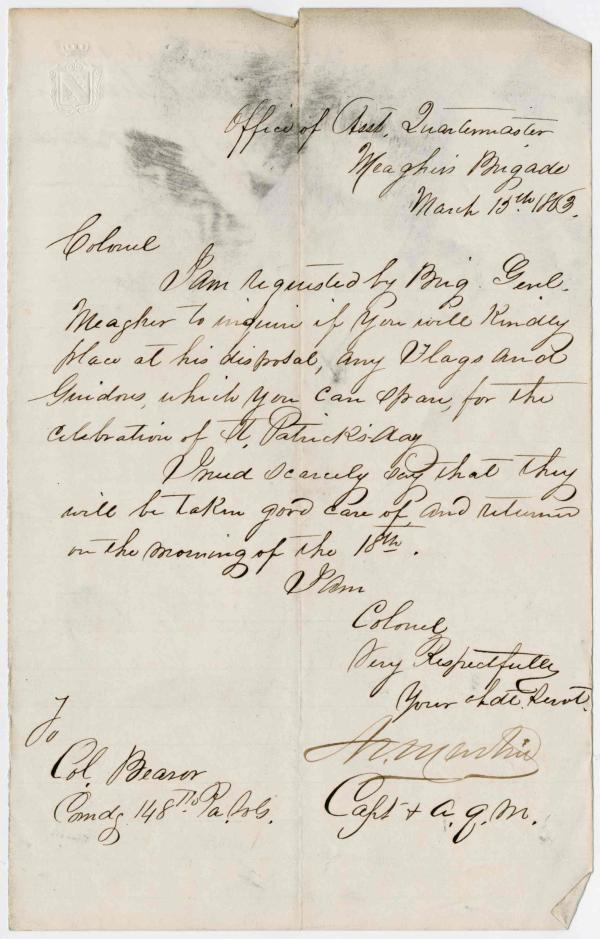 Office of Asst. Quartermaster
Meagher's Brigade
March 15th 1863.
Colonel
I am requested by Brig. Genl.
Meagher to inquire if you will Kindly
place at his disposal, any Flags and
Guidons, which you can spare, for the
celebration of St. Patrick's day
I need scarcely say that they
will be taken good care of, and returned
on the morning of the 18th.
I am
Colonel
Very Respectfully
Your Obdt. Servt.
Martin
Capt & A. Q. M.
To
Col. Beaver
Comdg. 148th Pa. Vols.